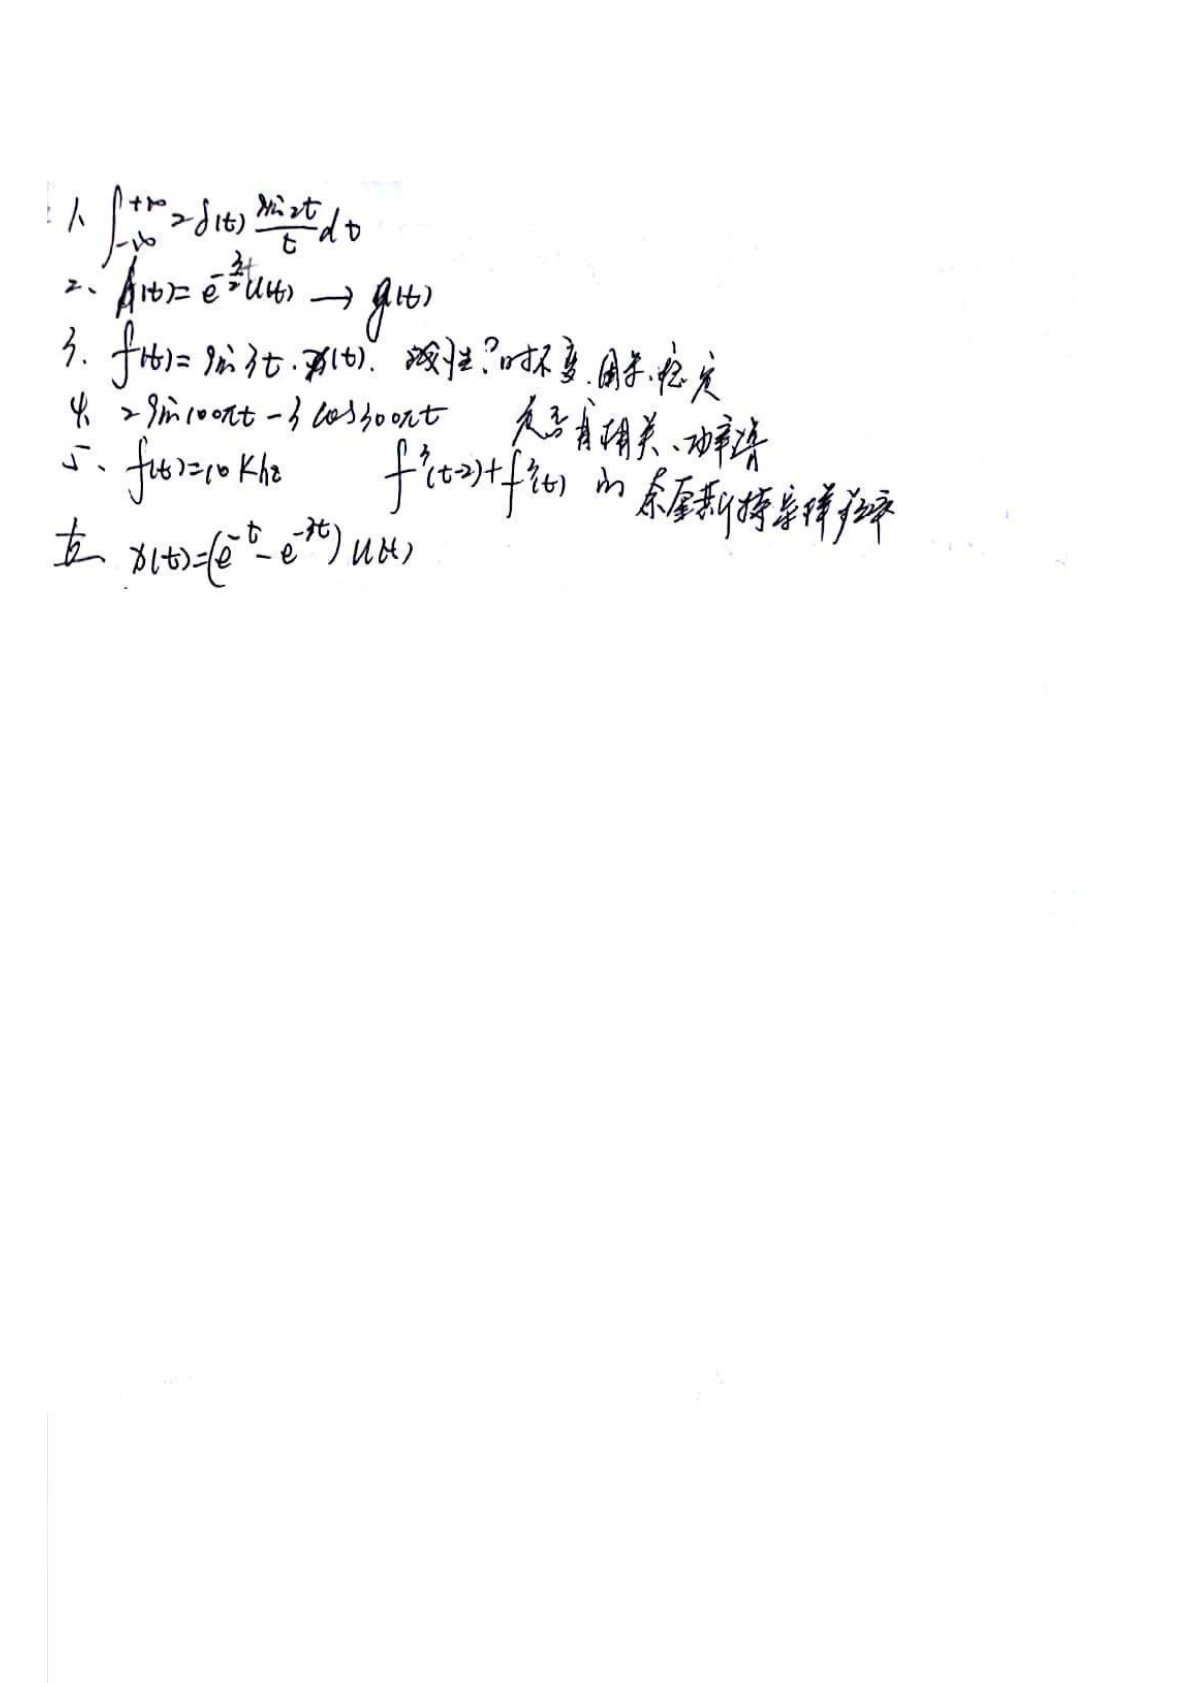 1、∫_{-∞}^{+∞} 2δ(t) \frac{sin2t}{t} dt
2、h(t)=e^{-\frac{3}{2}t}u(t) → g(t)
3. f(t)=sin3t·x(t). 线性?时不变.因果.稳定
4、2sin100πt-3cos300πt 是否自相关、功率谱
5、f(t)=10Khz f³(t-2)+f³(t) 的 奈奎斯特采样频率
五、x(t)=(e^{-t}-e^{-3t})u(t)